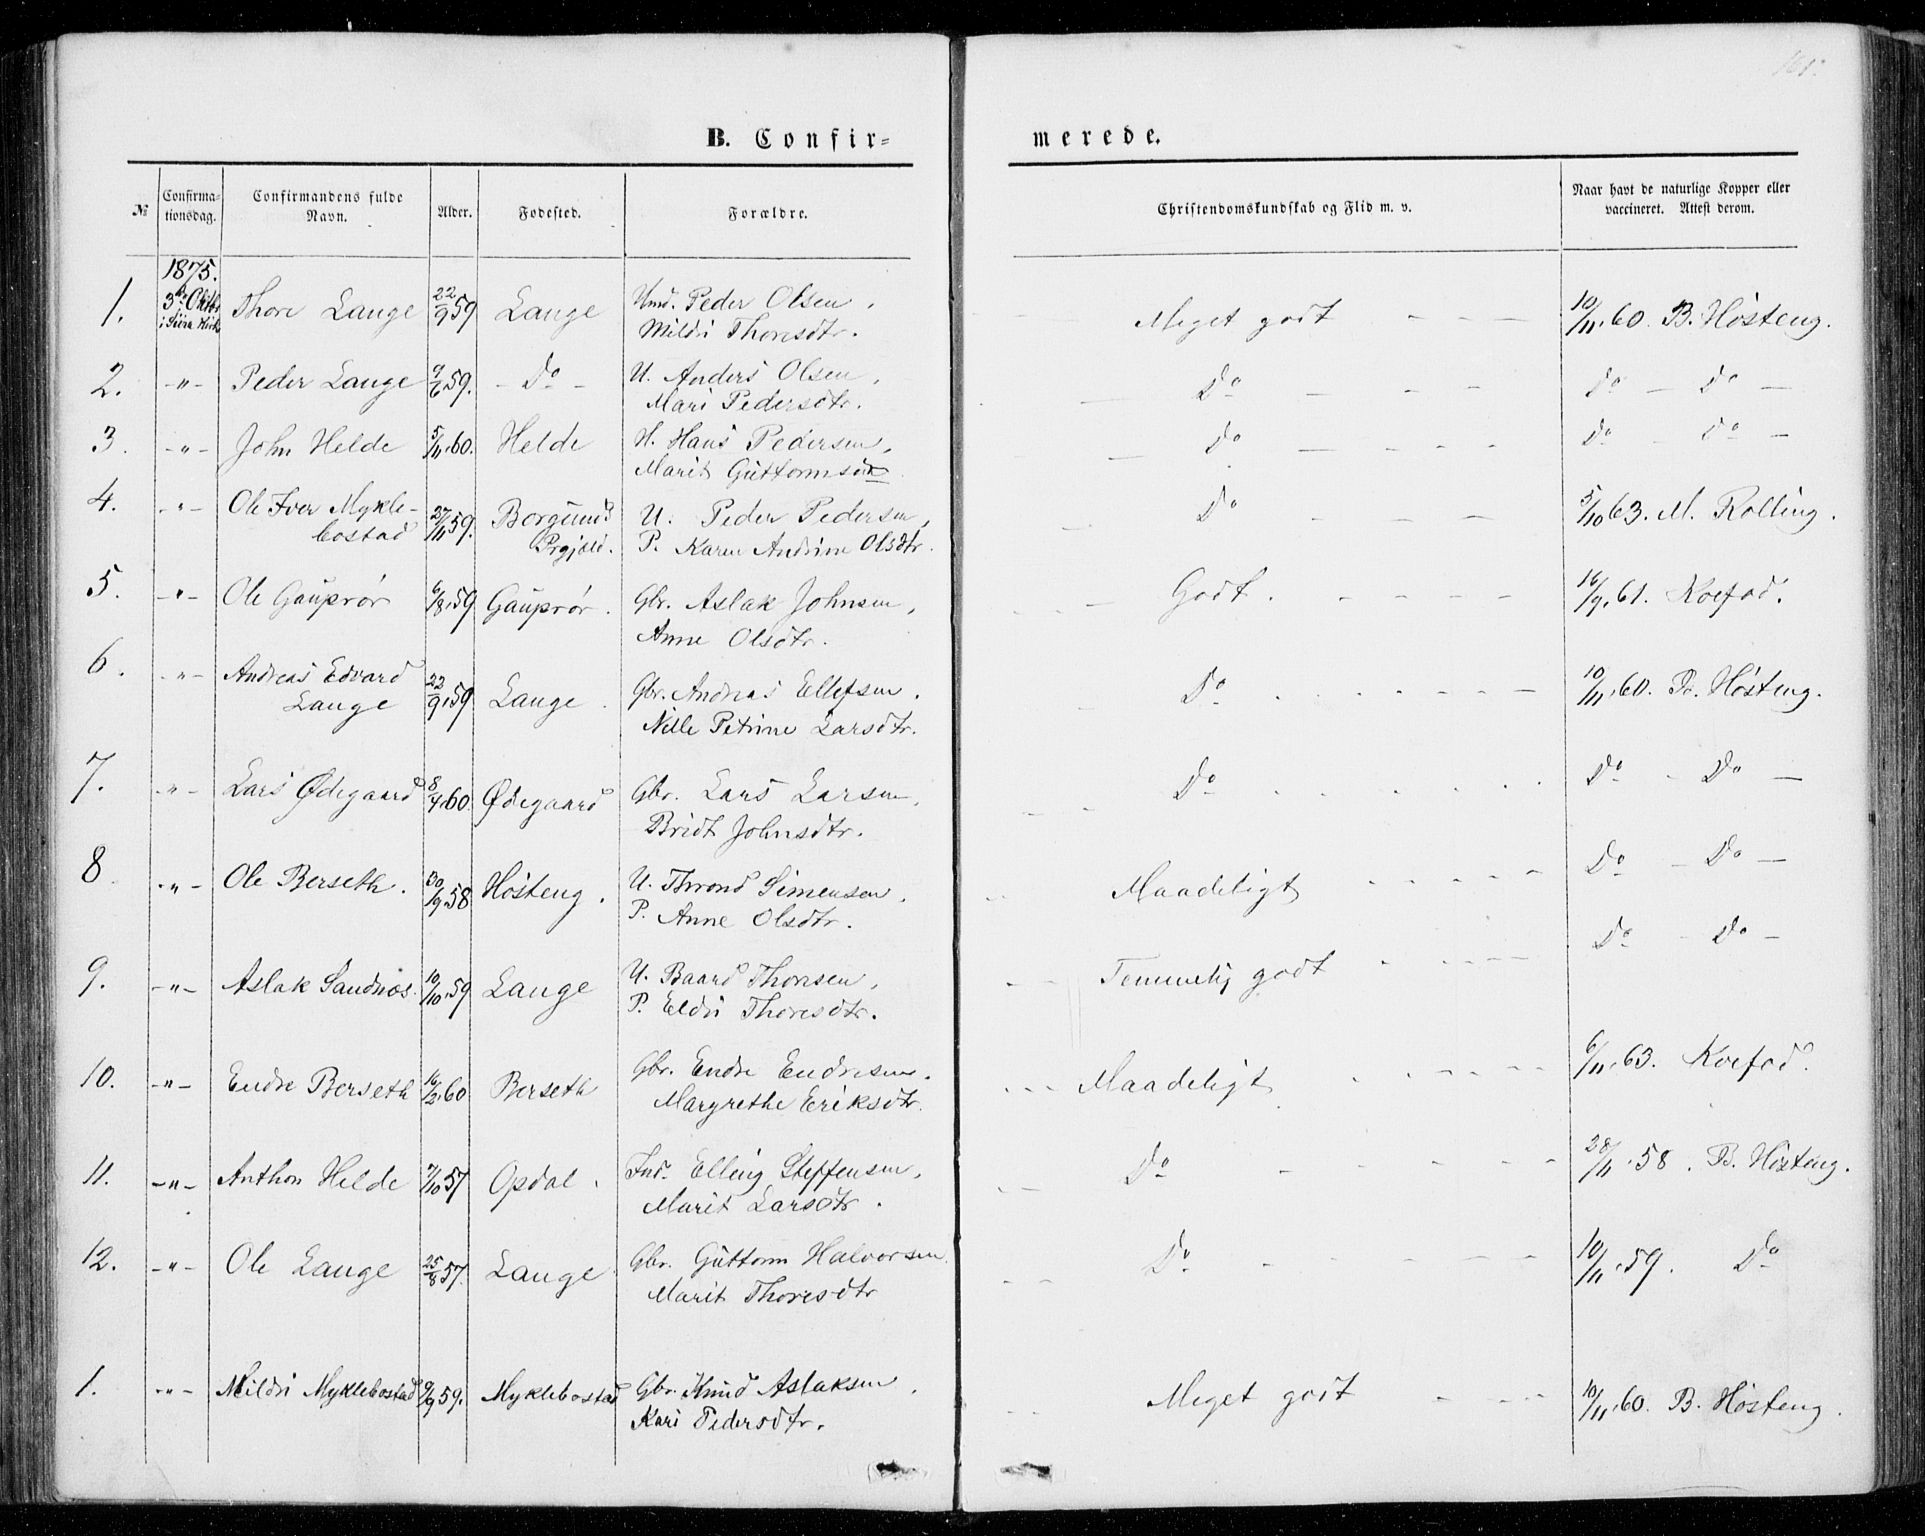 161.
B. Confir=
merede.
№
Confirma-
tionsdag.
Confirmandens fulde
Navn.
Alder.
Fødested.
Forældre.
Christendomskundskab og Flid m. v.
Naar havt de naturlige Kopper eller
vaccineret. Attest derom.
1875.
1. 3die Oktbr Thore Lange 22/9 59 Lange Umd. Peder Olsen, Meget godt - - - 10/11. 60. B. Hósteng.
i Siira Kirke Mildri Thoresdtr.
2. -"- Peder Lange 9/6 59. - Do - U. Anders Olsen, - Do - - - Do - Do -
Mari Pedersdtr.
3. -"- John Helde 5/11. 60. Helde H. Hans Pedersen, - Do - - - Do - Do -
Marit Guttormsdtr
4. -"- Ole Iver Mykle- 27/11 59. Borgund U. Peder Pedersen, - Do - - - 5/10 63. M. Rolling.
bostad Prgjæld. P. Karen Andrine Olsdtr.
5. -"- Ole Gauprør 6/8. 59 Gauprør. Gbr. Aslak Johnsen, - Godt. - - - - 16/9. 61. Koefod.
Anne Olsdtr.
6. -"- Andreas Edvard 22/9. 59 Lange. Gbr. Andreas Ellefsen. - Do - - - 10/11. 60. B. Hósteng.
Lange Nille Petrine Larsdtr.
7. -"- Lars Ødegaard 8/4. 60 Ødegaard Gbr. Lars Larsen, - Do - - - Do - Do -
Bridt Johnsdtr.
8 -"- Ole Berseth. 30/9. 58 Hósteng. U. Thrond Simensen, Maadeligt - - - - Do - Do -
P. Anne Olsdtr.
9. -"- Aslak Sandnæs. 10/10. 59 Lange U. Baard Thoresen, - - Temmelig godt - - - - Do - Do -
P. Eldri Thoresdtr.
10. -"- Endre Berseth 16/2. 60 Berseth Gbr. Endre Endresen. - - - Maadeligt - - - - 6/11. 63. Koefod.
Margrethe Eriksdtr.
11. -"- Anthon Helde 7/10 57 Opdal. Ind. Elling Steffensen, - - Do - - - - 28/11. 58. B. Hósteng.
Marit Larsdtr.
12. -"- Ole Lange 25/8 57. Lange Gbr. Guttorm Halvorsen - - Do - - - - 10/11. 59. Do
Marit Thoresdtr
1. -"- Mildri Myklebostad 9/9 59. Myklebostad Gbr. Knud Aslaksen, - - Meget godt - - - 10/11. 60. B. Hósteng.
Kari Pedersdtr.